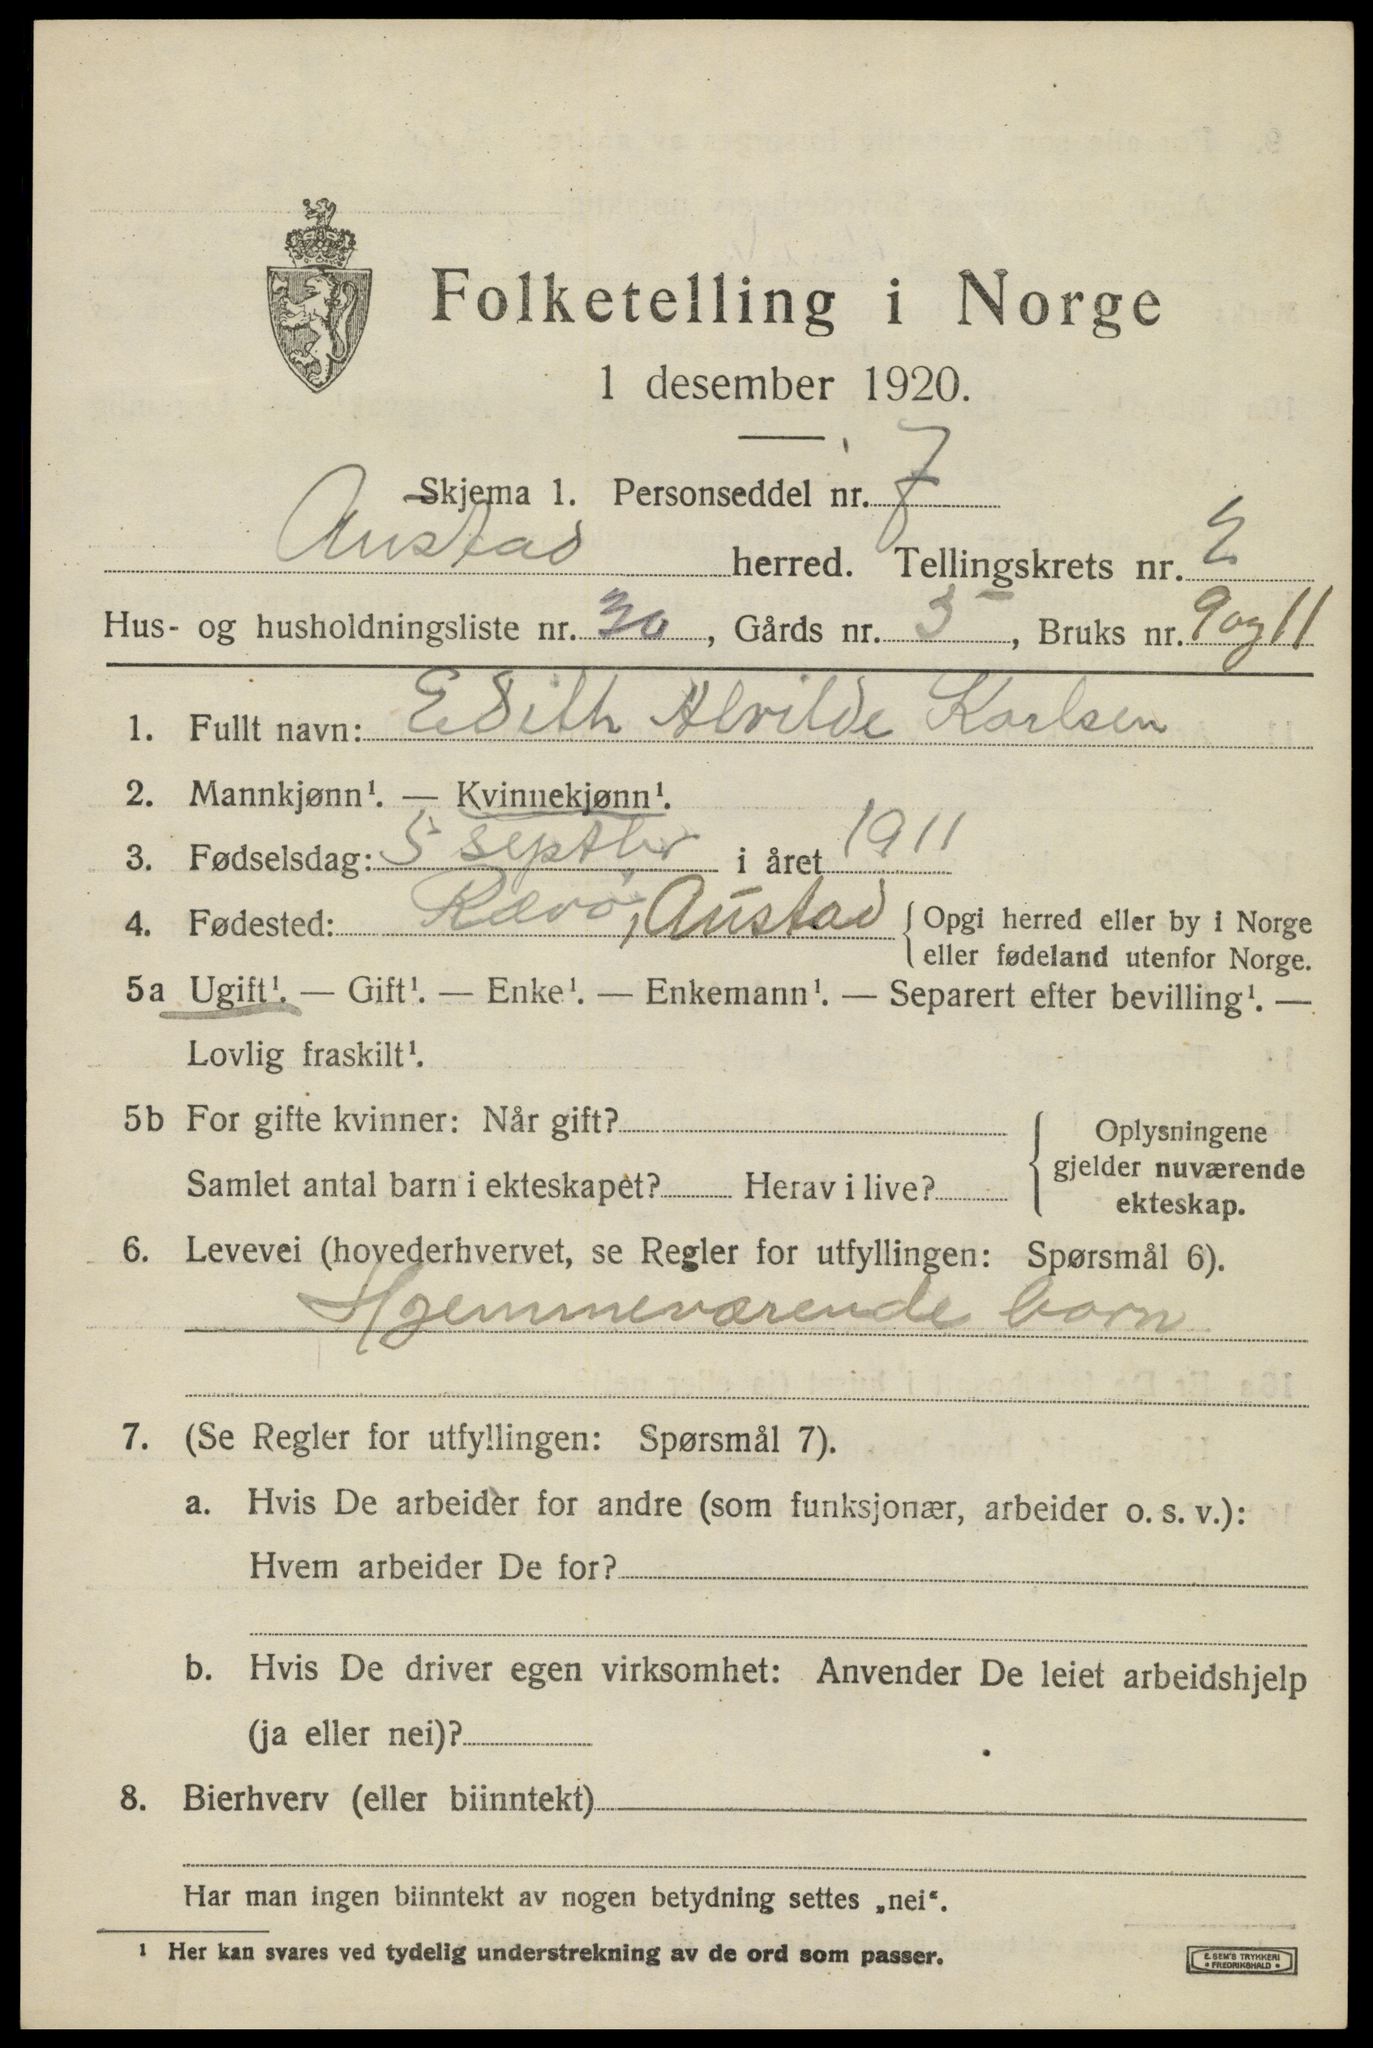 Folketelling i Norge
1 desember 1920.
Skjema 1. Personseddel nr. 7
Austad herred. Tellingskrets nr. 2
Hus- og husholdningsliste nr. 30, Gårds nr. 3, Bruks nr. 9 og 11
1. Fullt navn: Edith Alvilde Karlsen
2. Mannkjønn¹. — Kvinnekjønn¹.
3. Fødselsdag: 5 septbr i året 1911
4. Fødested: Rævø, Austad { Opgi herred eller by i Norge
eller fødeland utenfor Norge.
5a Ugift¹. — Gift¹. — Enke¹. — Enkemann¹. — Separert efter bevilling¹. —
Lovlig fraskilt¹.
5b For gifte kvinner: Når gift?
Samlet antal barn i ekteskapet? Herav i live?
{ Oplysningene
gjelder nuværende
ekteskap.
6. Levevei (hovederhvervet, se Regler for utfyllingen: Spørsmål 6).
Hjemmeværende barn
7. (Se Regler for utfyllingen: Spørsmål 7).
a. Hvis De arbeider for andre (som funksjonær, arbeider o. s. v.):
Hvem arbeider De for?
b. Hvis De driver egen virksomhet: Anvender De leiet arbeidshjelp
(ja eller nei)?
8. Bierhverv (eller biinntekt)
Har man ingen biinntekt av nogen betydning settes „nei“.
¹ Her kan svares ved tydelig understrekning av de ord som passer.
E. SEM'S TRYKKERI
• FREDRIKSHALD •